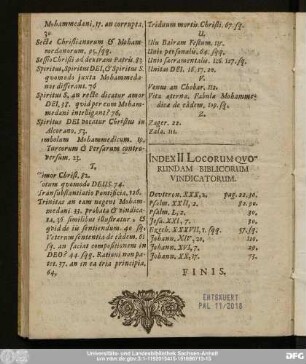 Mohammedani, 37. an corrupta,
30.
Secta Christianorum & Moham-
medanorum.
Sessio Christi ad dextram Patris. 83
Spiritus, Spiritus DEI, & Spiritus S.
quomodo juxta Mohammeda-
nos differant. 76
Spiritus S. an recte dicatur amor
DEI, 58. quid per eum Moham-
medani intelligant? 76.
Spiritus DEI vocatur Christus in
Alcorano, 53.
Symbolum Mohammedicum. 19.
Turcorum & Persarum contro-
versum. 23.
T.
Timor Christi. 82.
quomodo DEUS 74.
Transsubstantiatio Pontificia, 126.
Trinitas an eam negent Moham-
medani. 33. probata & vindica-
ta, 36 similibus illustratur, &
quid de iis sentiendum. 49. sq.
Veterum sententia de eadem. 61
sq. an faciat compositionem in
DEO? 44. sqq. Rationi num pa-
teat. 57. an in ea tria principia,
64.
Triduum mortis Christi. 67. sq.
U.
Ulu Bairam Festum. 131.
Unio personalis. 64. sqq.
Unio sacramentalis. 126. 127. sq.
Unitas DEI. 16. 17. 20.
V.
Venus an Chobar. 112.
Vita aterna, Fabula Mohamme-
dica de eadem. 119. sq.
Z.
Zager. 22.
Zala, 111.
INDEX II LOCORUM QUO-
RUNDAM BIBLICORUM
VINDICATORUM.
Deuteron. XXX, 2. pag. 29. 30.
Psalm. XXII, 2. 30. 90.
Psalm. L, 2. 30.
Jesa. XXI, 7. 30.
Ezech. XXXVII, 1. sqq. 37. sq.
Johann. XIV, 20, 110.
Johann. XVI, 7. 29.
Johann. XX, 17. 71.
FINIS.
ENTSÄUERT
PAL 11/2016
Universitäts- und Landesbibliothek Sachsen-Anhalt
DFG